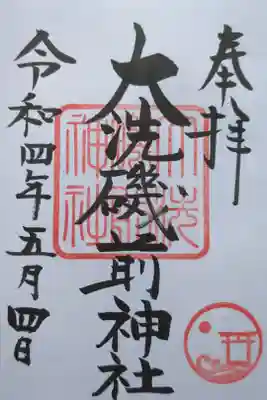 奉拝
大洗磯前神社
令和四年五月四日